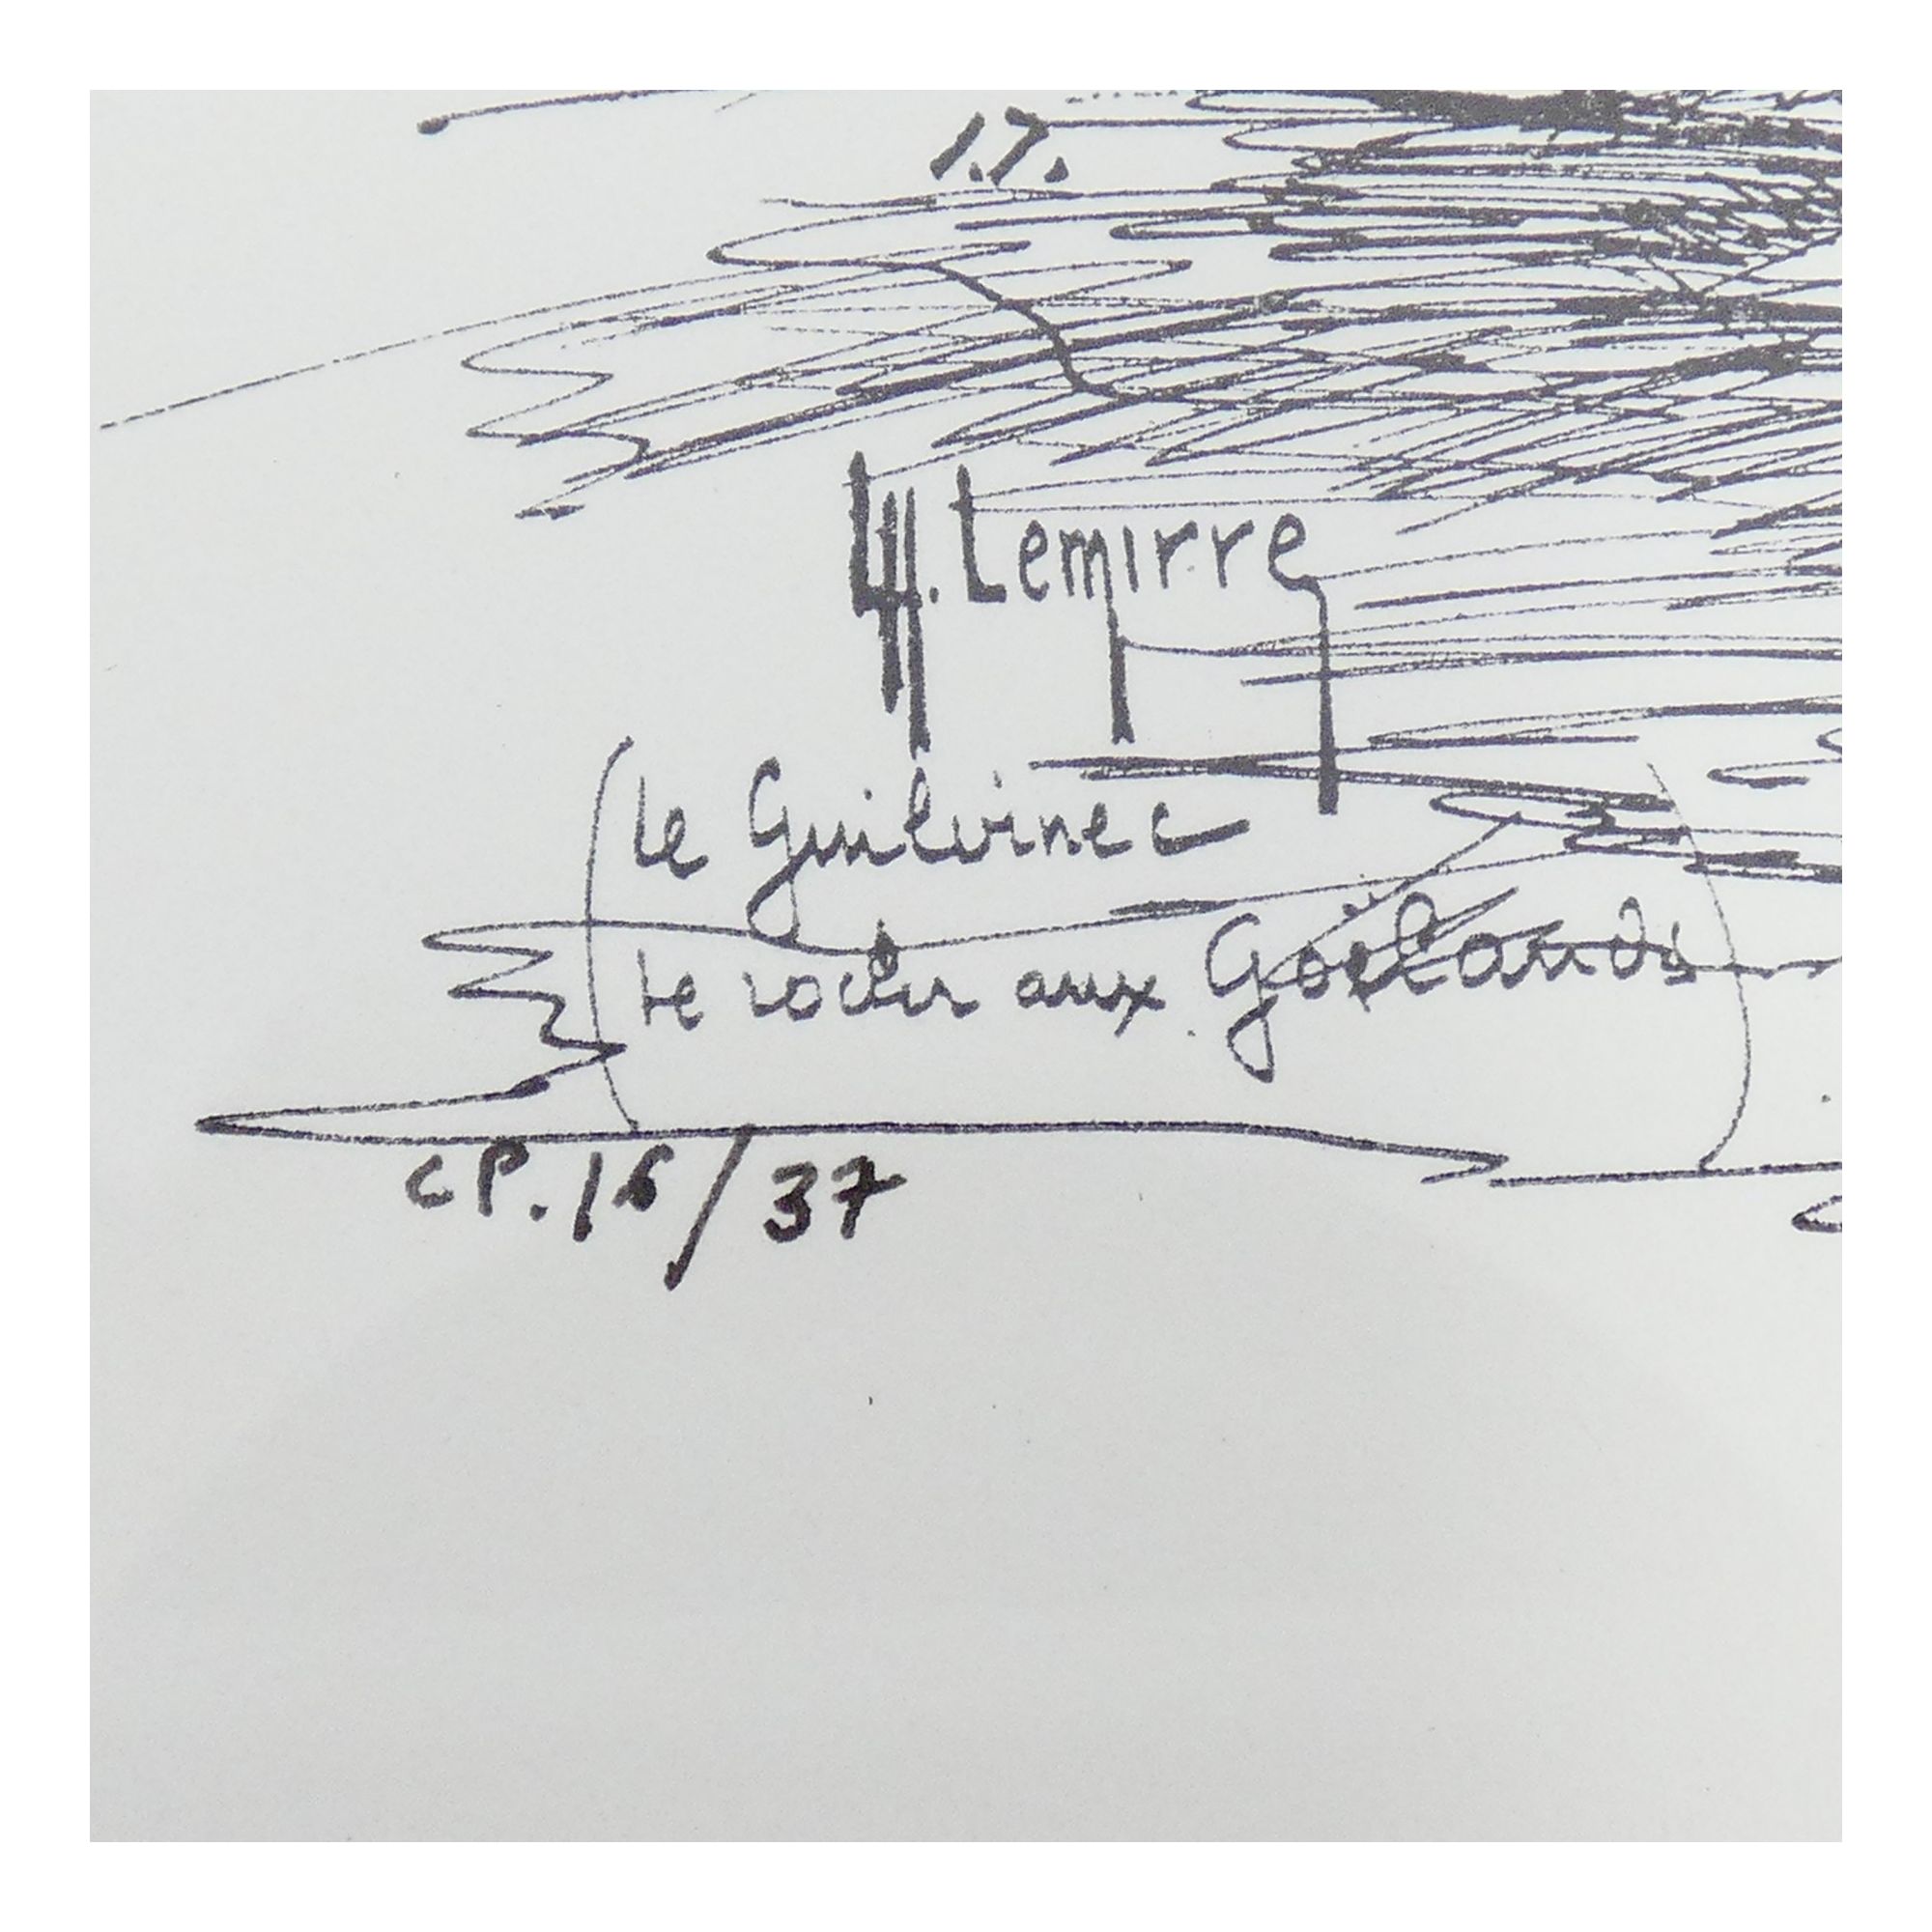 17.
M. Lemirre
le Guilvinec
le rocher aux Goëlands
CP. 16/37